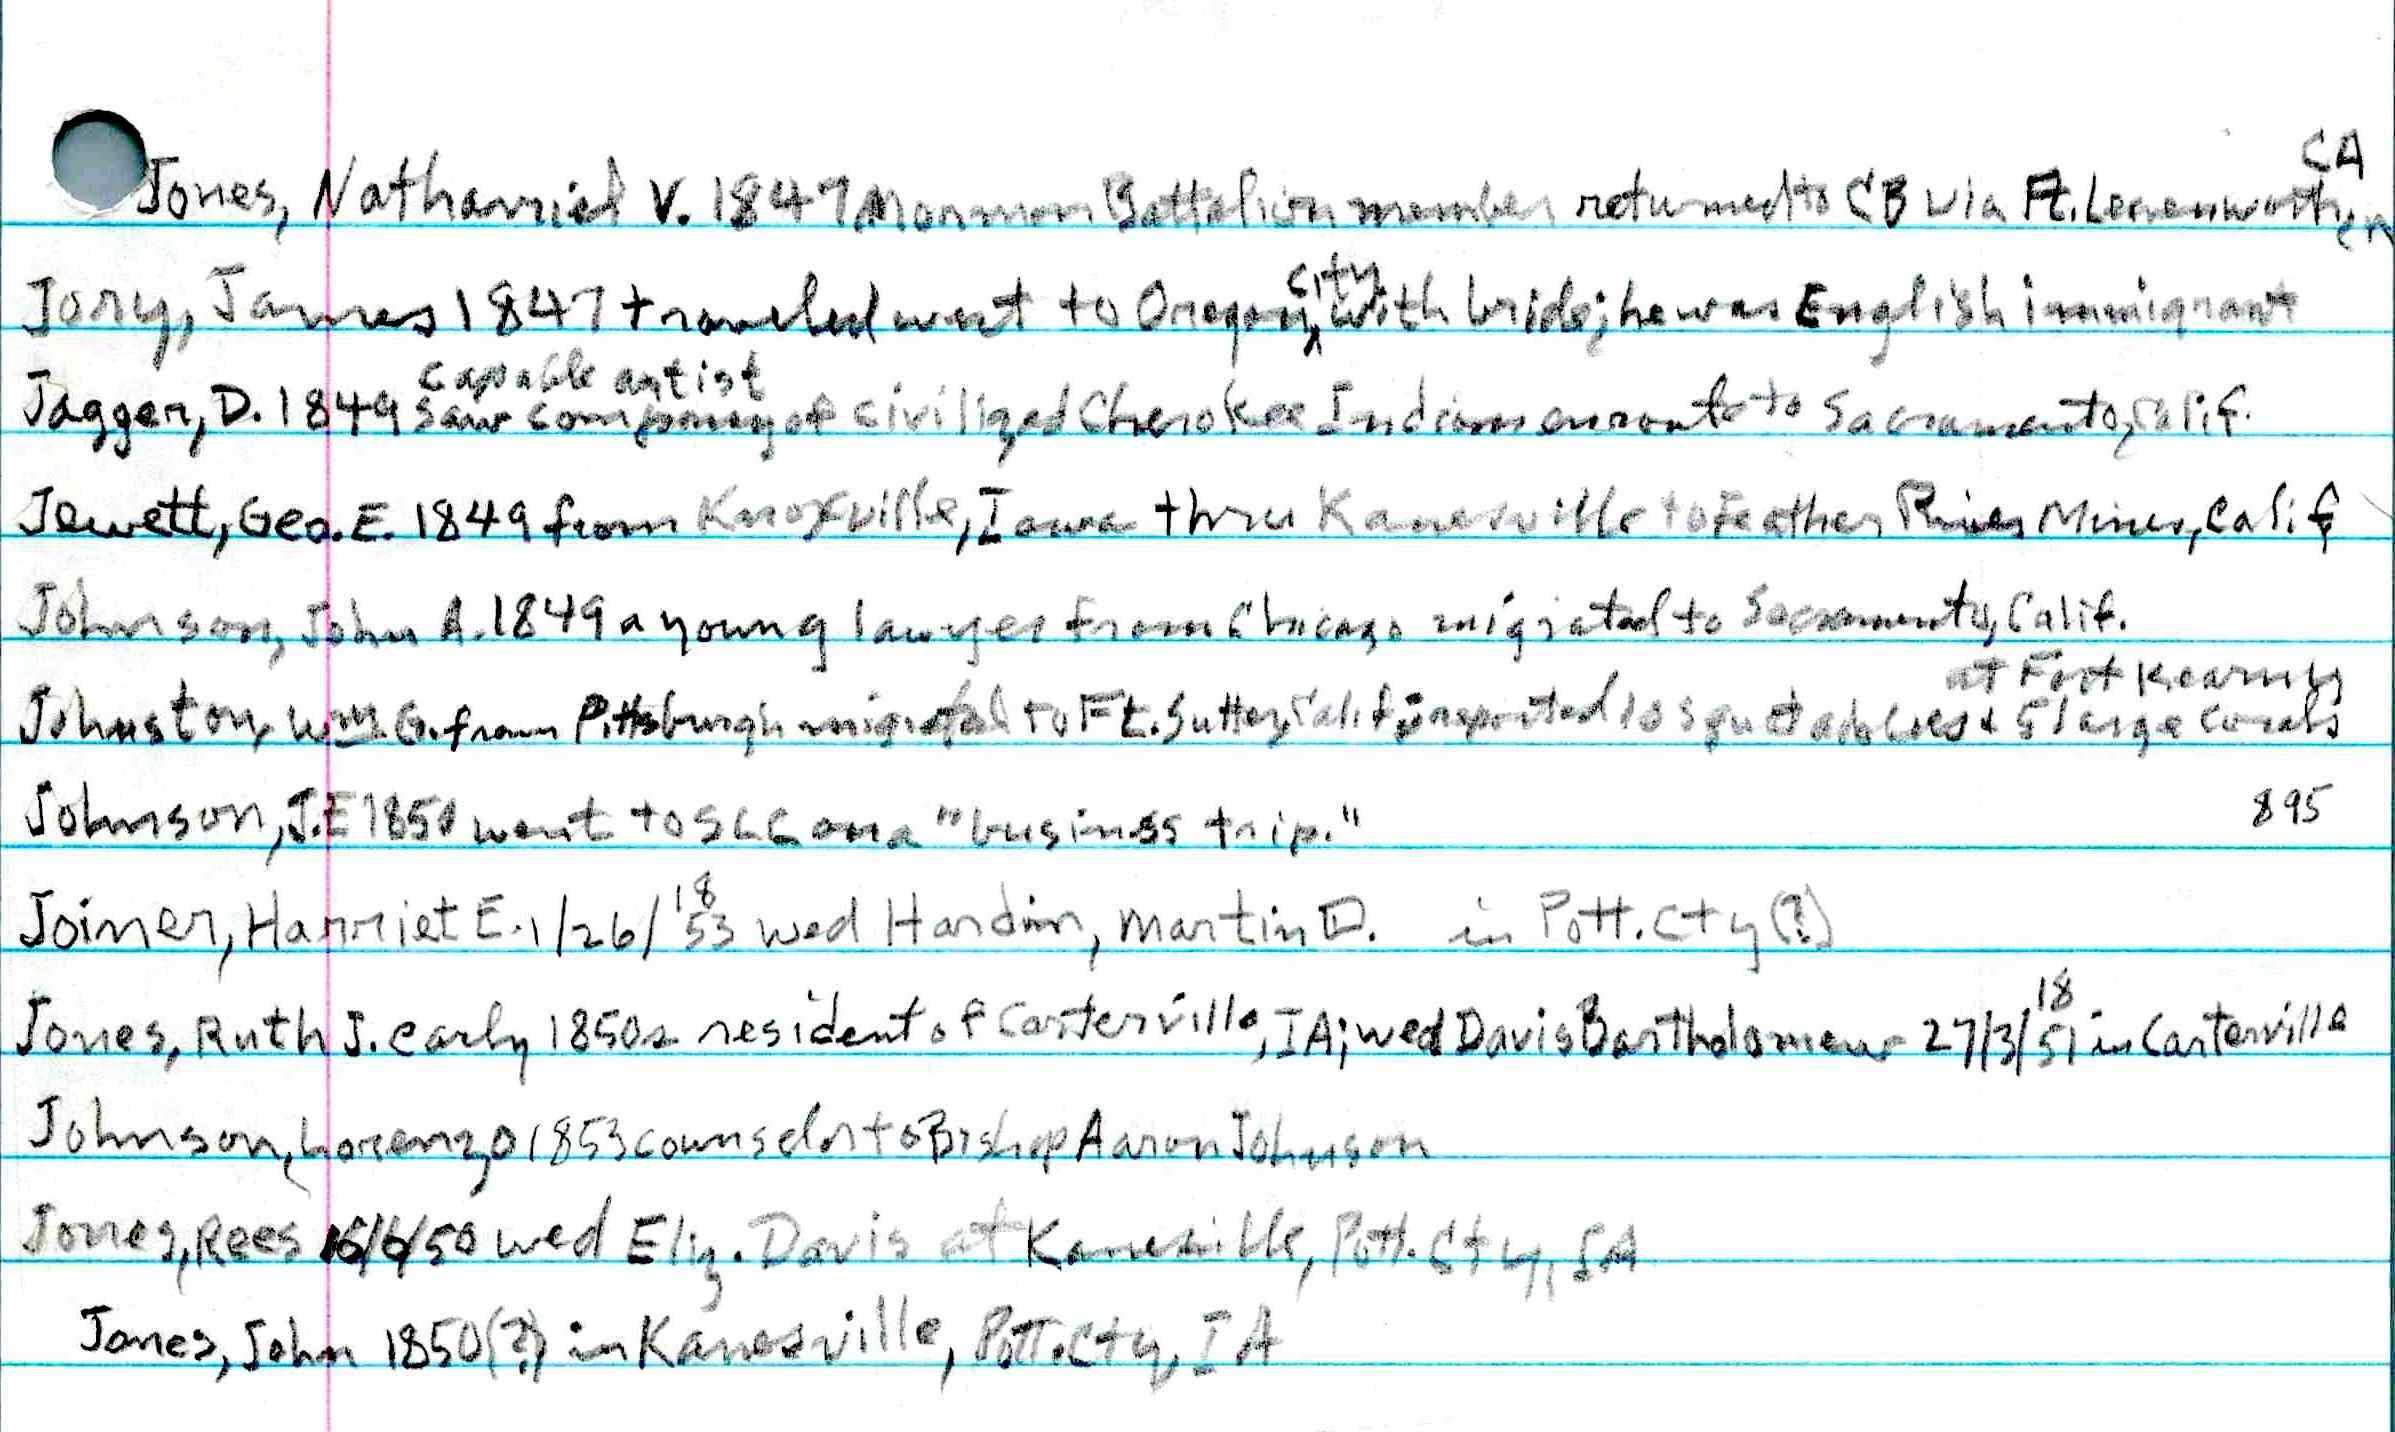 CA
Jones, Nathaniel V. 1847 Mormon Battalion member returned to CB via Ft. Leavenworth, en
city
Jory, James 1847 traveled west to Oregon, with bride; he was English immigrant
capable artist
Jagger, D. 1849 saw company of civilized Cherokee Indians enroute to Sacramento, Calif.
Jewett, Geo. E. 1849 from Knoxville, Iowa thru Kanesville to Feather River Mines, Calif
Johnson, John A. 1849 a young lawyer from Chicago migrated to Sacramento, Calif.
at Fort Kearny
Johnston, Wm. G. from Pittsburgh migrated to Ft. Sutter, Calif; reported 10 squat adobes & 5 large corals
Johnson, J.E 1850 went to SLC on a "business trip." 895
18
Joiner, Harriet E. 1/26/53 wed Hardin, Martin D. in Pott. Cty (?)
18
Jones, Ruth J. early 1850s resident of Carterville, IA; wed Davis Bartholomew 27/3/51 in Carterville
Johnson, Lorenzo 1853 counselor to Bishop Aaron Johnson
Jones, Rees 16/6/50 wed Eliz. Davis at Kanesville, Pott. Cty, IA
Jones, John 1850(?) in Kanesville, Pott. Cty, IA